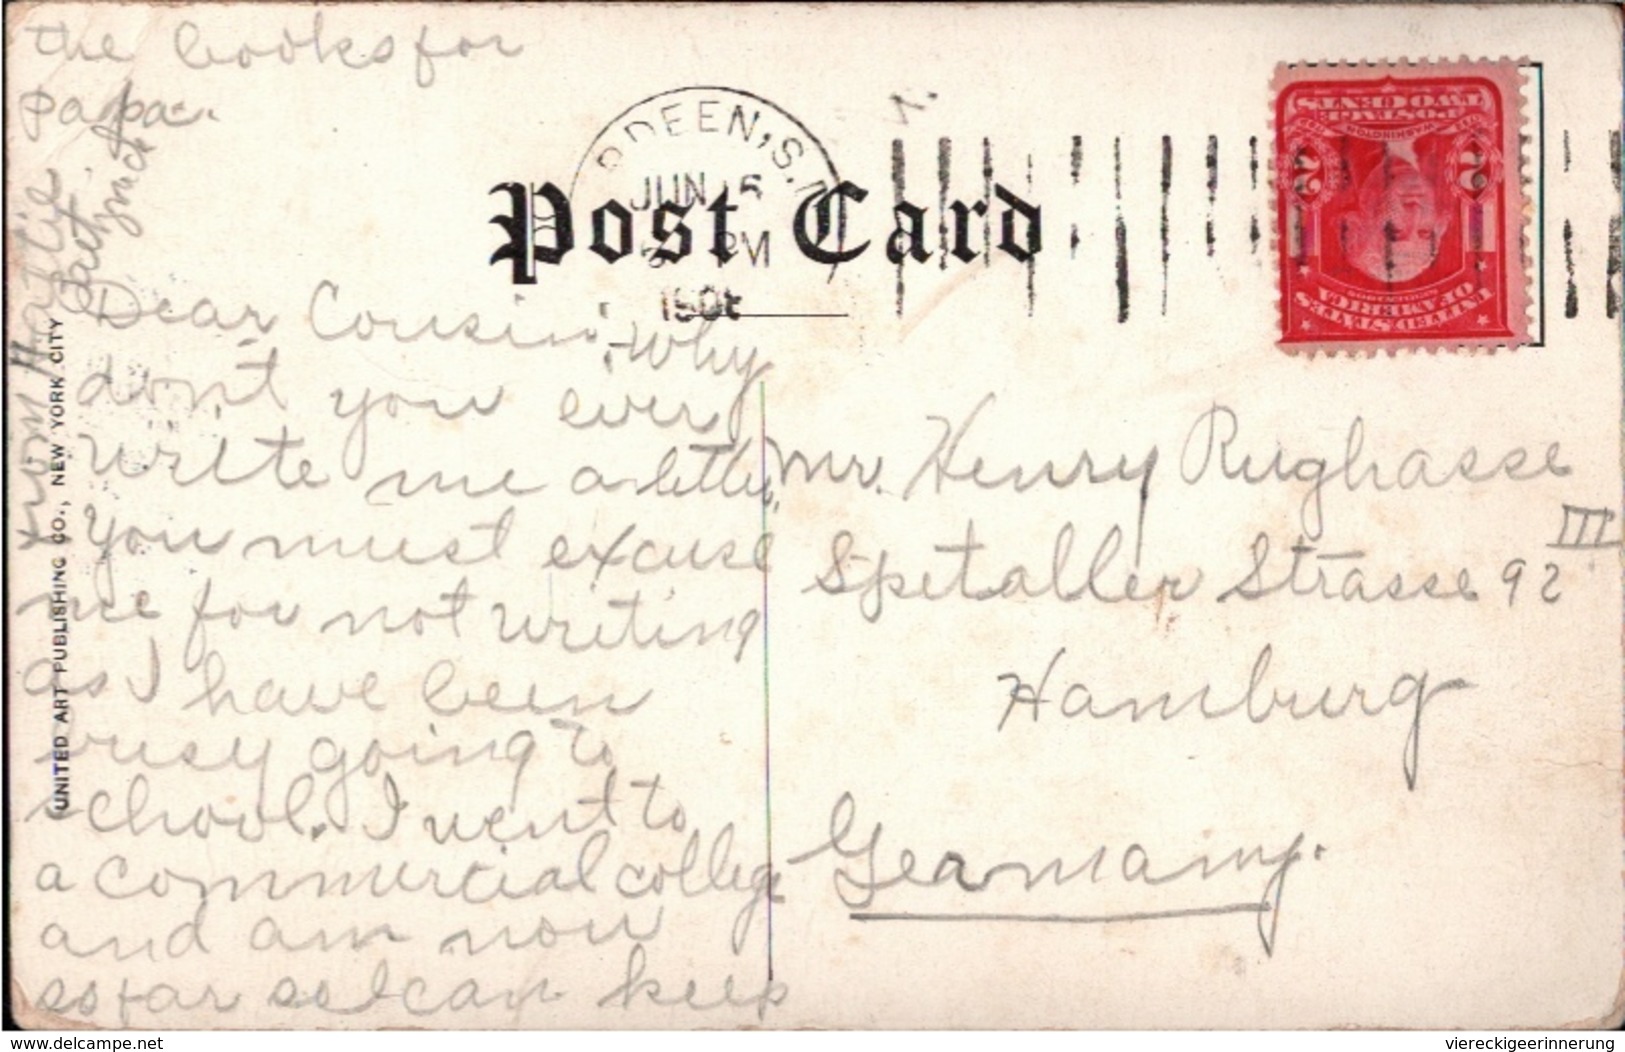 the books for
Papa.
from Hattie
Post Card
JUN 15
PM
TWO CENTS
POSTAGE
WASHINGTON
2 2
UNITED STATES
OF AMERICA
Dear Cousin:- Why
don't you ever
write me a letter.
You must excuse
me for not writing
as I have been
busy going to
school. I went to
a commercial college
and am now
so far as I can keep
UNITED ART PUBLISHING CO., NEW YORK CITY
Mr. Henry Rughasse
Spetaller Strasse 92 III
Hamburg
Germany.
delcampe.net
viereckigeerinnerung